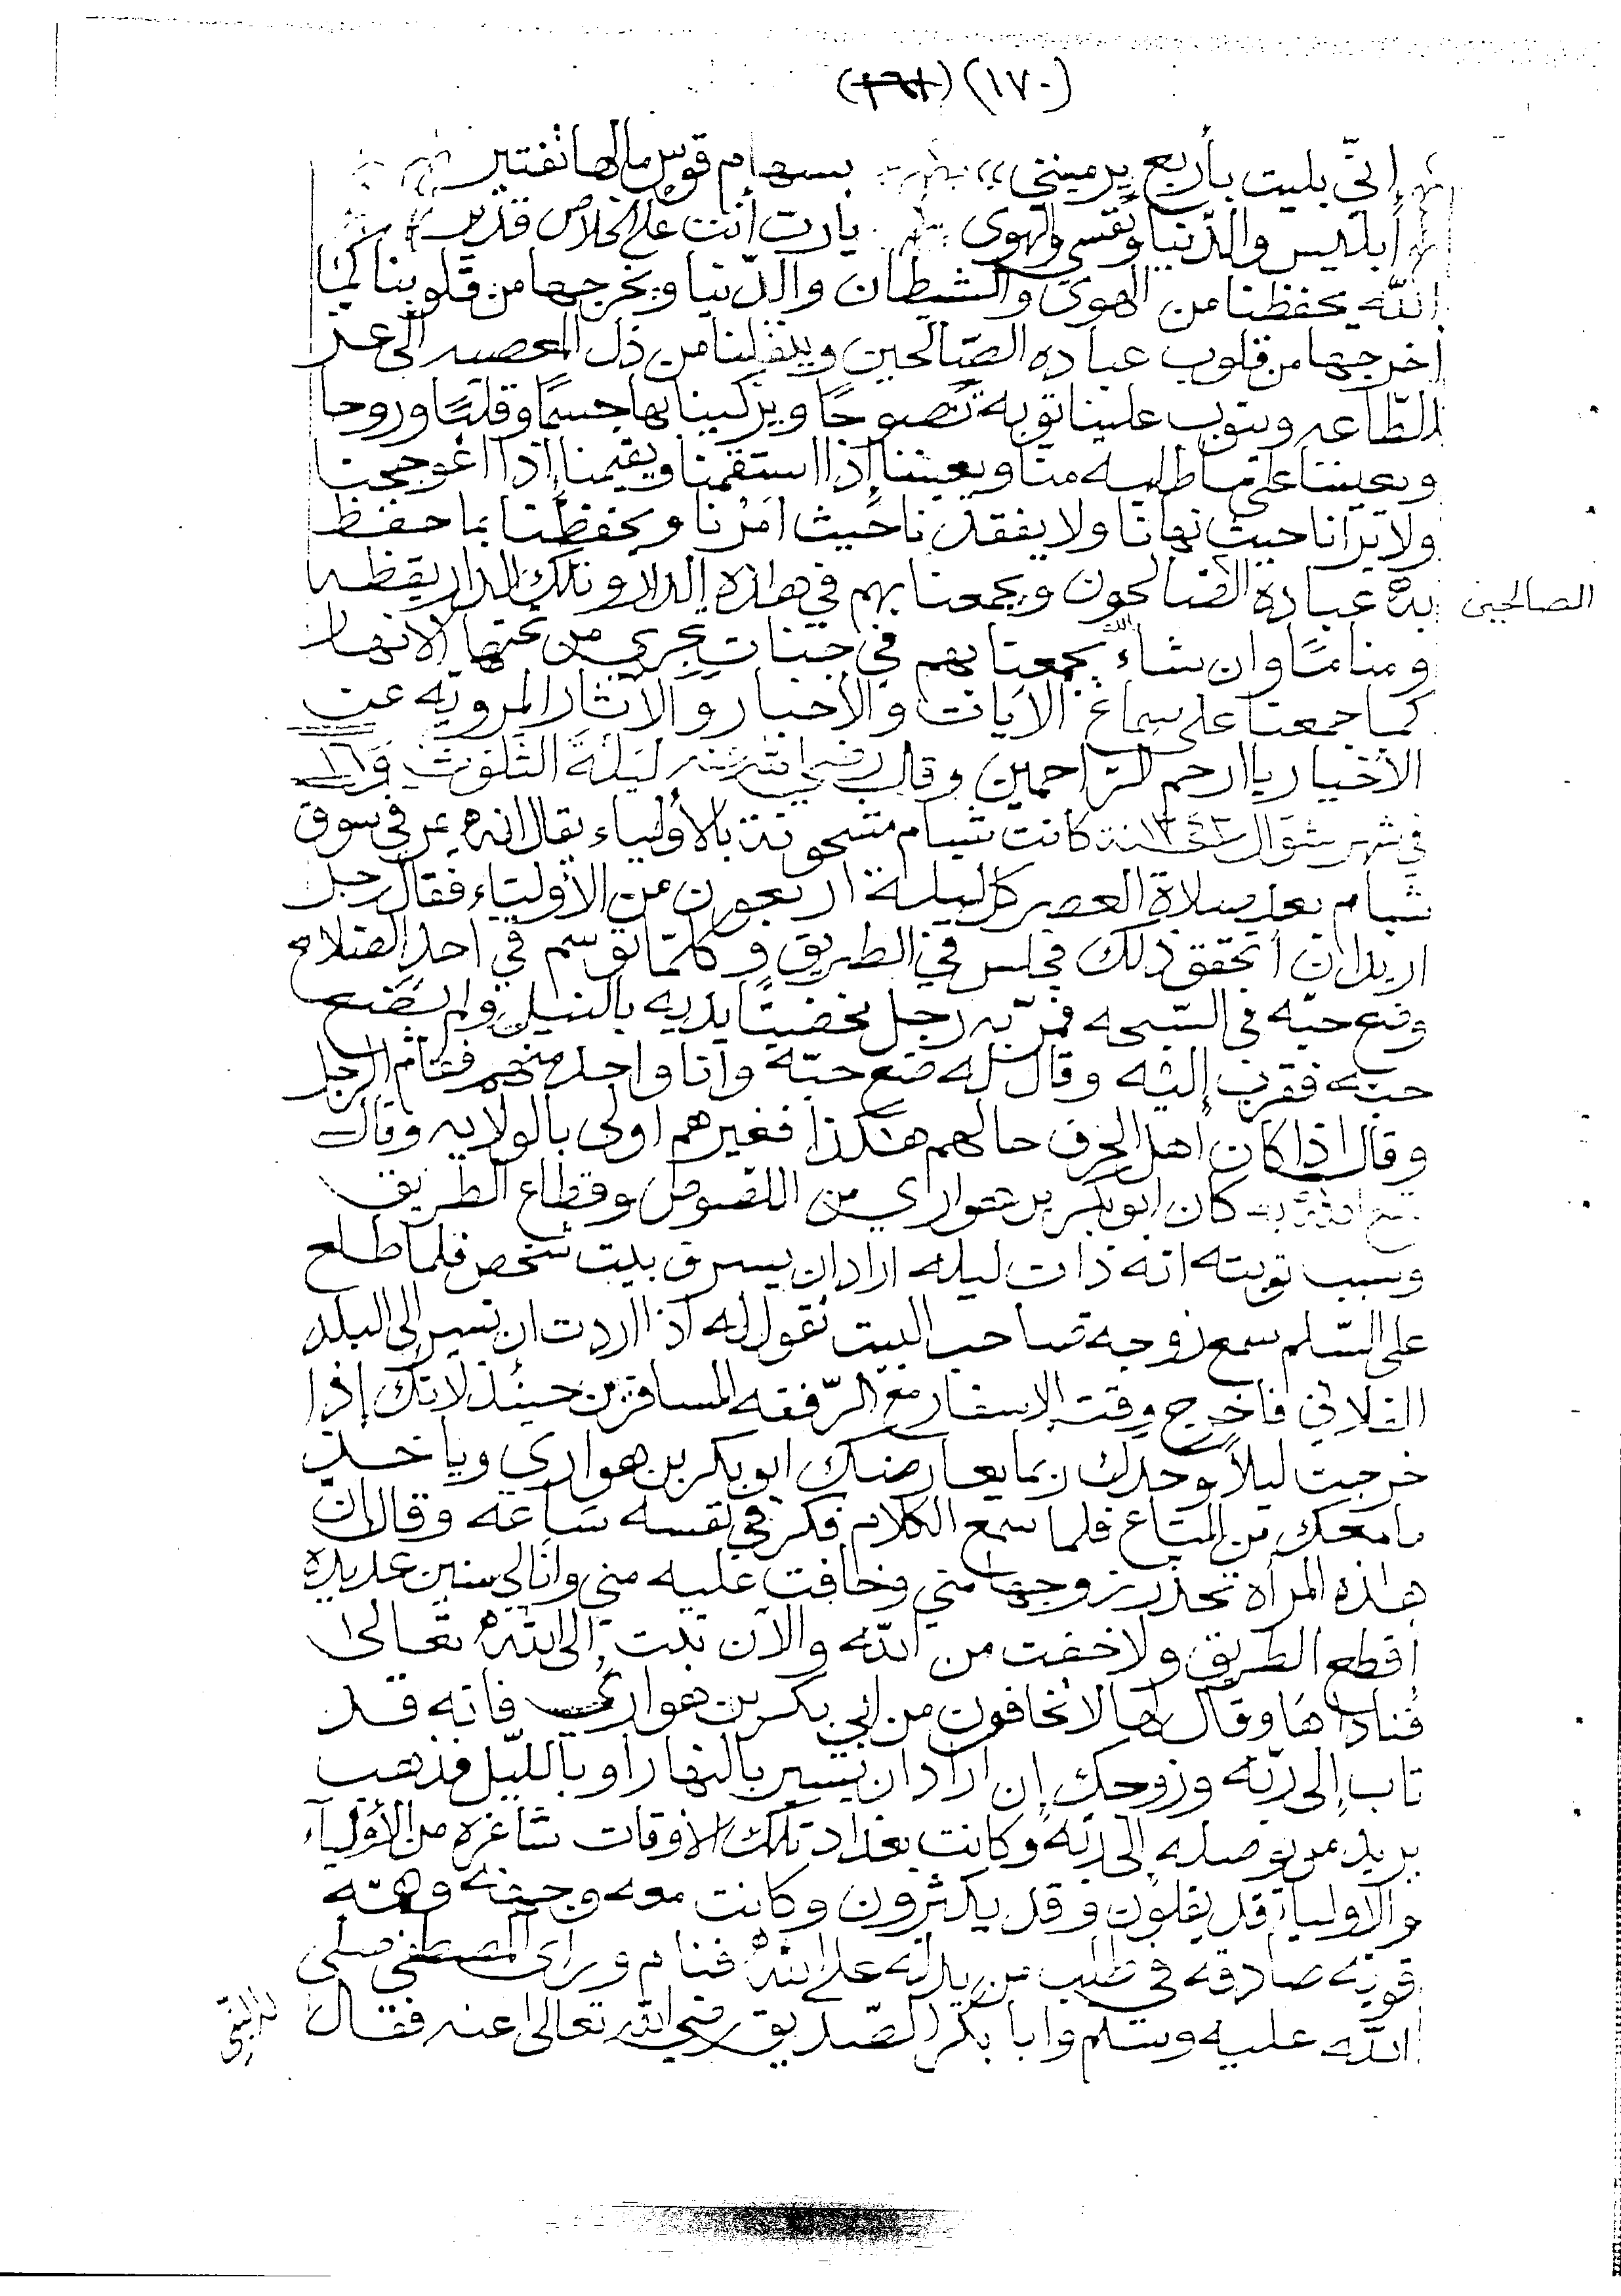 (١٧٠) (١٦٨)
إنّي بليت بأربع يرمينني بسهام قوس مالها تفتير
إبليس والدّنيا ونفسي والهوى يارب أنت على الخلاص قدير
الله يحفظنا من الهوى والشيطان والدّنيا ويخرجها من قلوبنا كما
أخرجها من قلوب عباده الصّالحين وينقلنا من ذل المعصيه الى عز
الطّاعه ويتوب علينا توبة نصوحًا ويزكينا بها جسمًا وقلبًا وروحا
ويعيننا على ما طلبه منا ويعيننا إذا استقمنا ويقيمنا إذا اعوججنا
ولا يرانا حيث نهانا ولا يفقدنا حيث امرنا ويحفظنا بما حفظ
به عباده الصالحون ويجمعنا بهم في هذه الدار وتلك الدار يقظه
الصالحين
ومنامًا وان شاء الله يجمعنا بهم في جنات تجري من تحتها الانهار
كما جمعنا على سماع الآيات والأخبار والآثار المرويّه عن
الأخيار ياارحم الرّاحمين وقال رضي الله عنه ليلة الثلوث ١٦
في شهر شوال سنة كانت شبام مشحونة بالأولياء يقال انه يمر في سوق
شبام بعد صلاة العصر كل ليلة اربعون من الأولياء فقال رجل
اريد ان أتحقق ذلك فجلس في الطريق وكلما توسم في احد الصلاح
وضع حبّه في السّبحه فمرّ به رجل مخضبًا يديه بالنيل ولم يضع
حبّه فقرب إليه وقال له ضع حبّة وأنا واحد منهم فقام الرجل
وقال اذا كان أهل الحرف حالهم هكذا فغيرهم اولى بالولايه وقال
متع الله به كان ابوبكر بن هواري من اللصوص وقطاع الطريق
وسبب توبته انه ذات ليله اراد ان يسرق بيت شخص فلما طلع
على السّلم سمع زوجة صاحب البيت تقول له اذا اردت ان تسير إلى البلد
الفلاني فاخرج وقت الإسفار مع الرّفقه المسافرين حينئذ لانك إذا
خرجت ليلاً وحدك ربما يعارضك ابوبكر بن هواري وياخذ
مامعك من المتاع فلما سمع الكلام فكر في نفسه ساعه وقال انّ
هذه المرأة تحذر زوجها مني وخافت عليه مني وانالي سنين عديدة
أقطع الطريق ولا خفت من الله والآن تبت إلى الله تعالى
فناداها وقال لها لا تخافون من ابي بكر بن هواري فانه قد
تاب إلى ربّه وزوجك إن اراد ان يسير بالنهار او بالليل فذهب
يريد من يوصله إلى ربّه وكانت بغداد تلك الاوقات شاغره من الأولياء
والاولياء قد يقلون وقد يكثرون وكانت معه وجهة وهمّه
قويّه صادقه في طلب من يدله على الله فنام ورأى المصطفى صلى
الله عليه وسلم وابا بكر الصّديق رضي الله تعالى عنه فقال